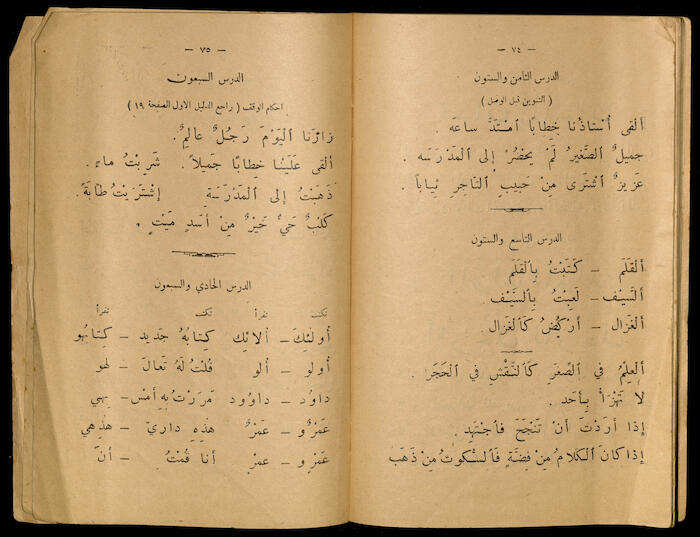 — ٧٤ —
الدرس الثامن والستون
( التنوين قبل الوصل )
أَلقى أُستاذُنا خِطابًا ٱمْتَدَّ ساعه .
جميلٌ ٱلصَّغيرُ لَمْ يحْضُرْ إِلى ٱلْمَدْرَسه .
عَزيزٌ ٱشْتَرى مِنْ حَبيبٍ ٱلتّاجرِ ثِياباً .
الدرس التاسع والستون
أَلْقَلَم – كَتَبْتُ بِٱلْقَلَم
أَلسَّيْف – لَعِبْتُ بِٱلسَّيْف .
أَلْغَزال – أَرْكُضُ كَٱلْغَزال
أَلْعِلْمُ في ٱلصِّغَر كَٱلنَّقْشِ في ٱلْحَجَر .
لا تَهْزَأْ بِأَحد .
إِذا أَرَدْتَ أَنْ تَنْجَحَ فَٱجْتَهِد .
إِذا كانَ ٱلْكَلامُ مِنْ فِضَّةٍ فَٱلسُّكوتُ مِنْ ذَهَب
— ٧٥ —
الدرس السبعون
احكام الوقف ( راجع الدليل الاول الصفحة ١٩ )
زارَنا ٱلْيَوْمَ رَجُلٌ عالِمٌ .
أَلقى عَلَيْنا خِطابًا جَميلاً . شَرِبْتُ ماءٍ .
ذَهَبْتُ إِلى ٱلْمَدْرَسَة إِشْتَرَيْتُ طابَةً .
كَلْبٌ حَيٌّ خَيْرٌ مِنْ أَسَدٍ مَيْتٍ .
الدرس الحادي والسبعون
تكتب تقرأ تكتب تقرأ
أُولٰئِكَ – أُلائِك كِتابُهُ جَديد – كِتابُهو
أُولو – أُلو قُلْتُ لَهُ تَعالَ – لهو
داوُد – داوُود مَرَرْتُ بِهِ أَمْسِ – بِهي
عَمْرٌو – عَمْرٌ هٰذِهِ داري – هٰذِهي
عَمْرٍو – عَمْرٍ أَنا قُمْتُ – أَنَ